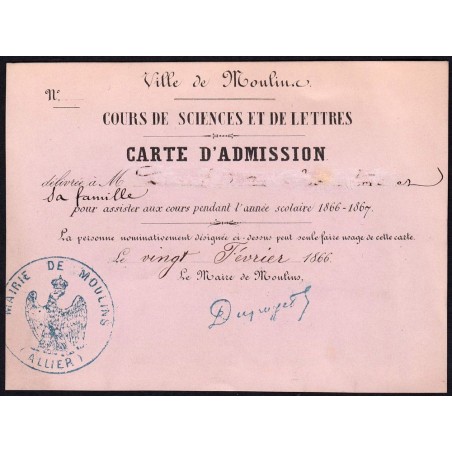 Ville de Moulins
N°
COURS DE SCIENCES ET DE LETTRES
CARTE D'ADMISSION
délivrée à M et
sa famille
pour assister aux cours pendant l'année scolaire 1866-1867.
La personne nominativement désignée ci-dessus peut seule faire usage de cette carte.
Le vingt Février 1866.
Le Maire de Moulins,
MAIRIE DE MOULINS
(ALLIER)